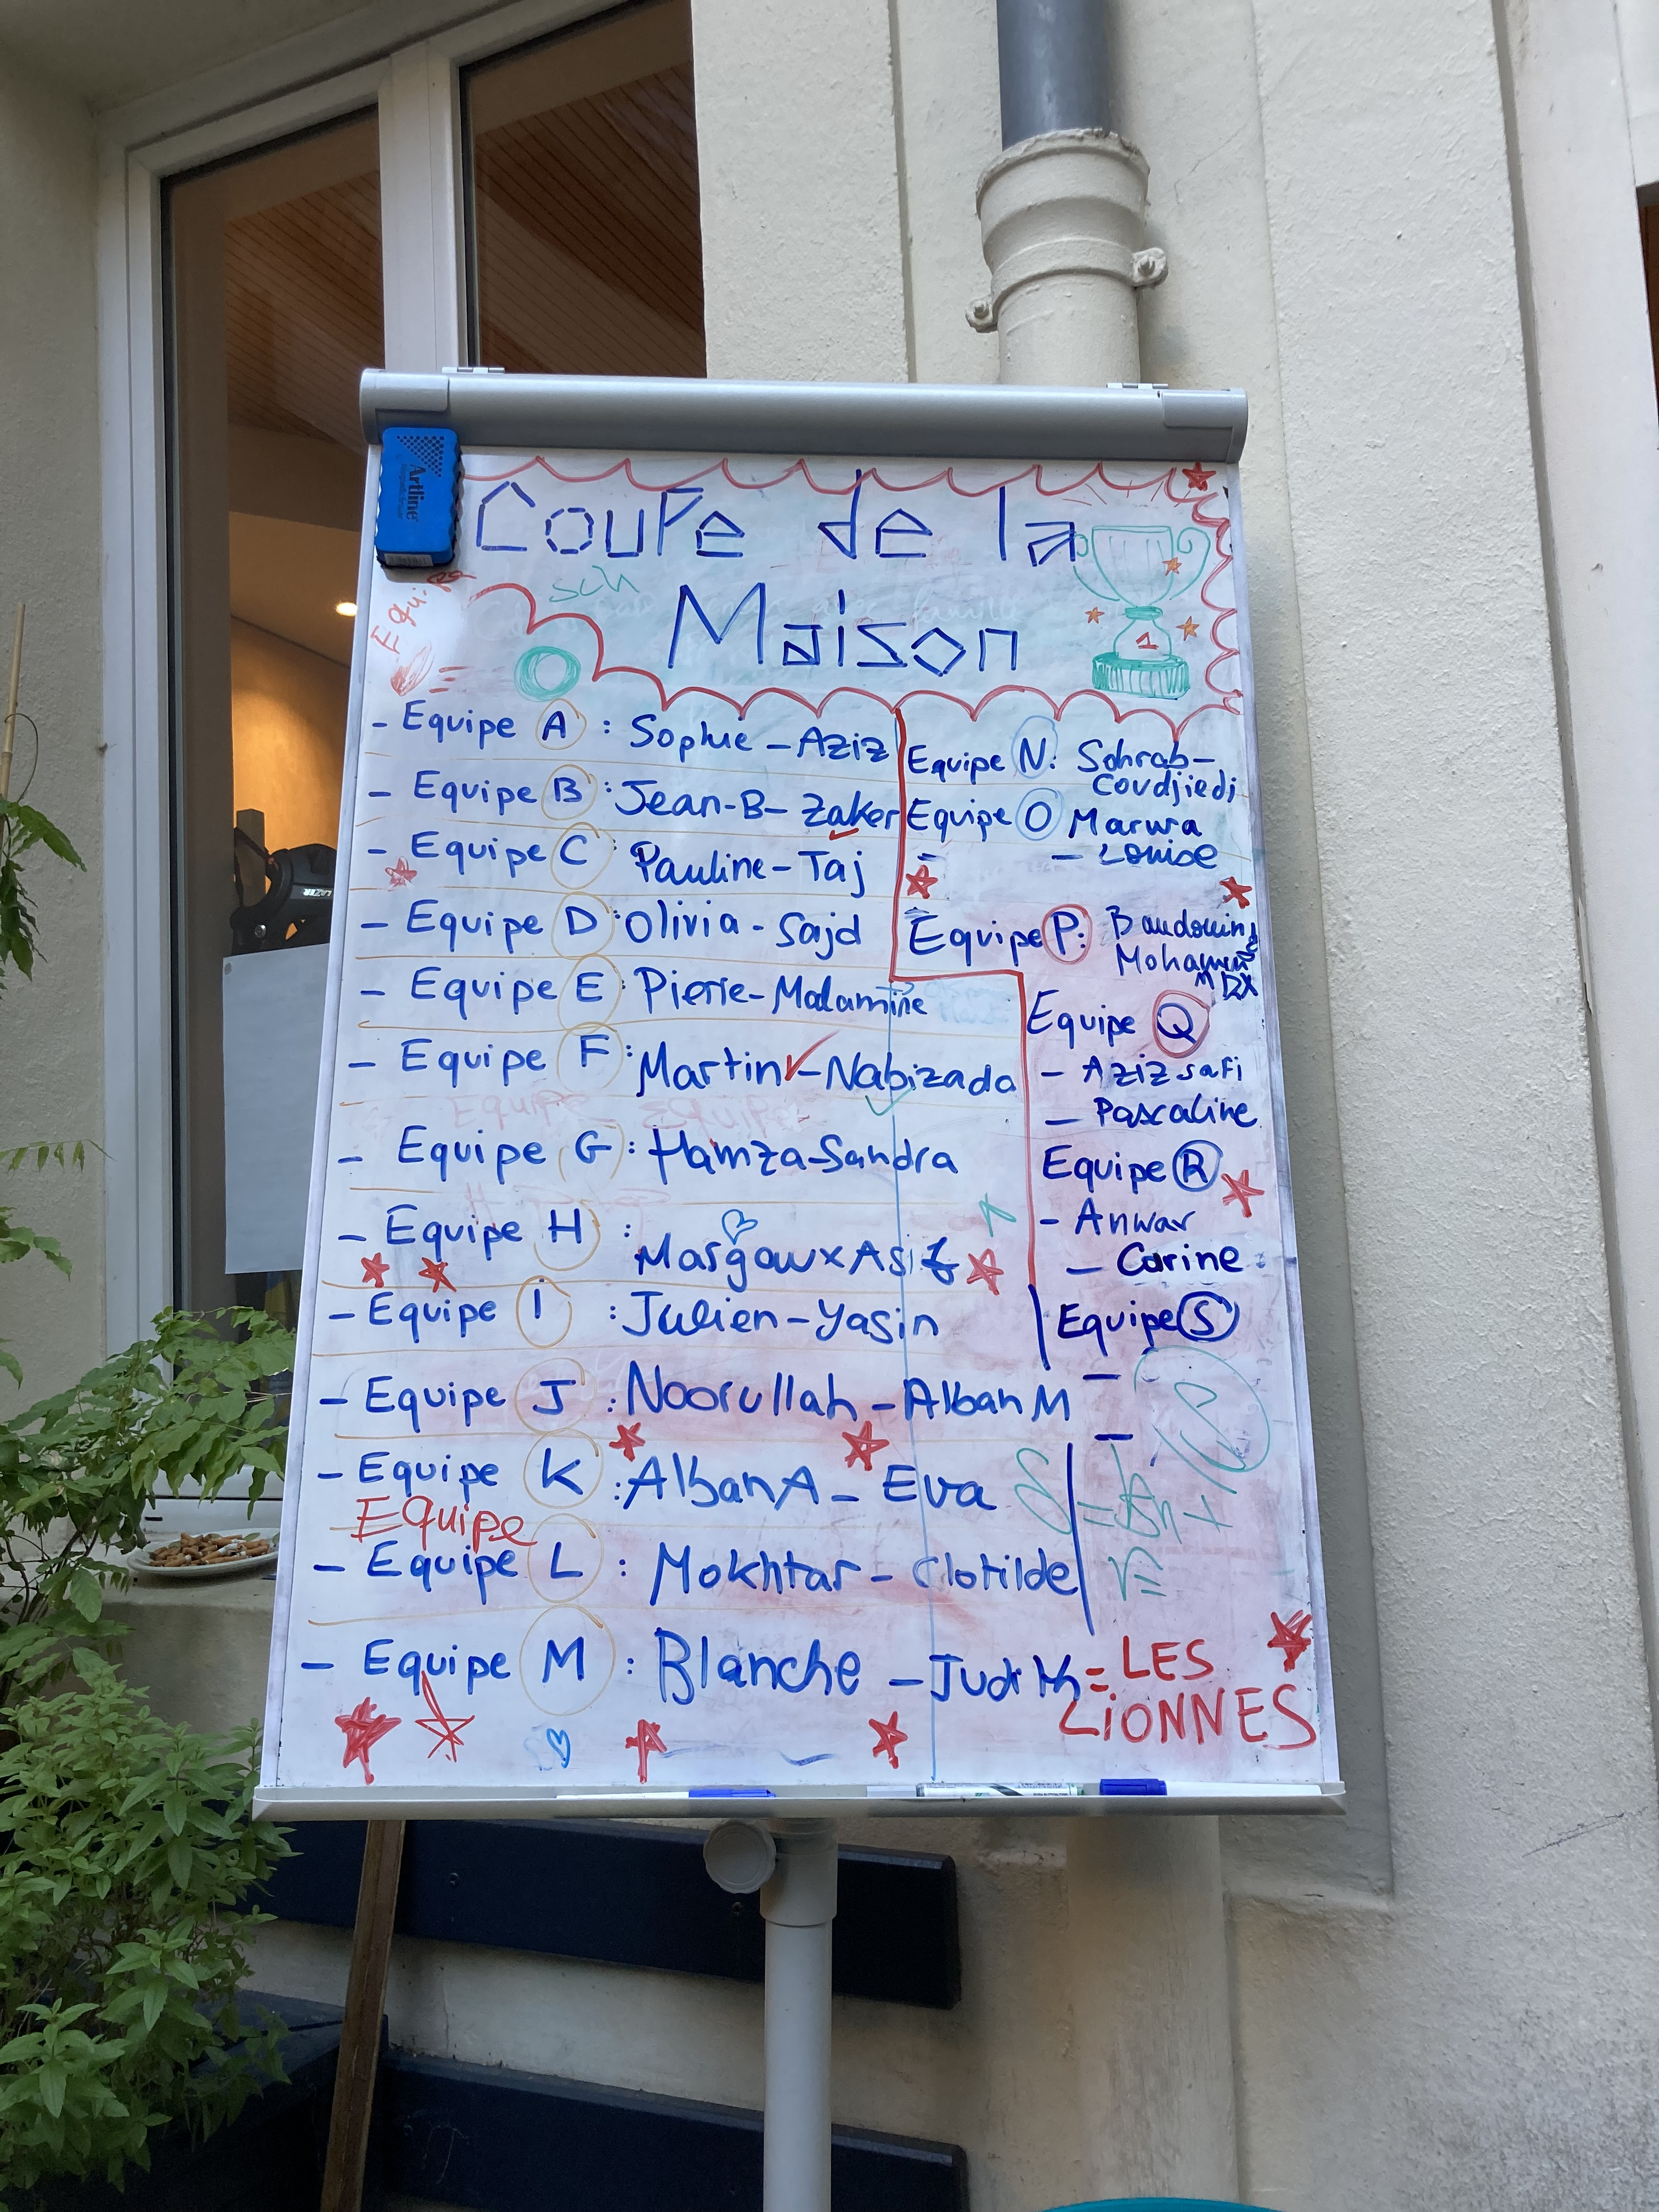 Artline
CouPe de la
Maison
sch
Equipe
1
- Equipe A : Sophie - Aziz
- Equipe B : Jean-B - Zaker
- Equipe C : Pauline - Taj
- Equipe D : Olivia - Sajd
- Equipe E : Pierre - Malamine
- Equipe F : Martin - Nabizada
- Equipe G : Hamza - Sandra
- Equipe H : Margaux Asif
- Equipe I : Julien - Yasin
- Equipe J : Noorullah - Alban M
- Equipe K : Alban A - Eva
EQuipe
- Equipe L : Mokhtar - Clotilde
- Equipe M : Blanche - Judith = LES
LiONNES
Equipe N : Sohrab -
Coudjiedi
Equipe O Marwa
- Louise
Equipe P : Baudouin
Equipe Q
- Aziz safi
- Pascaline
Equipe R
- Anwar
- Carine
Equipe S
-
-
LAZER